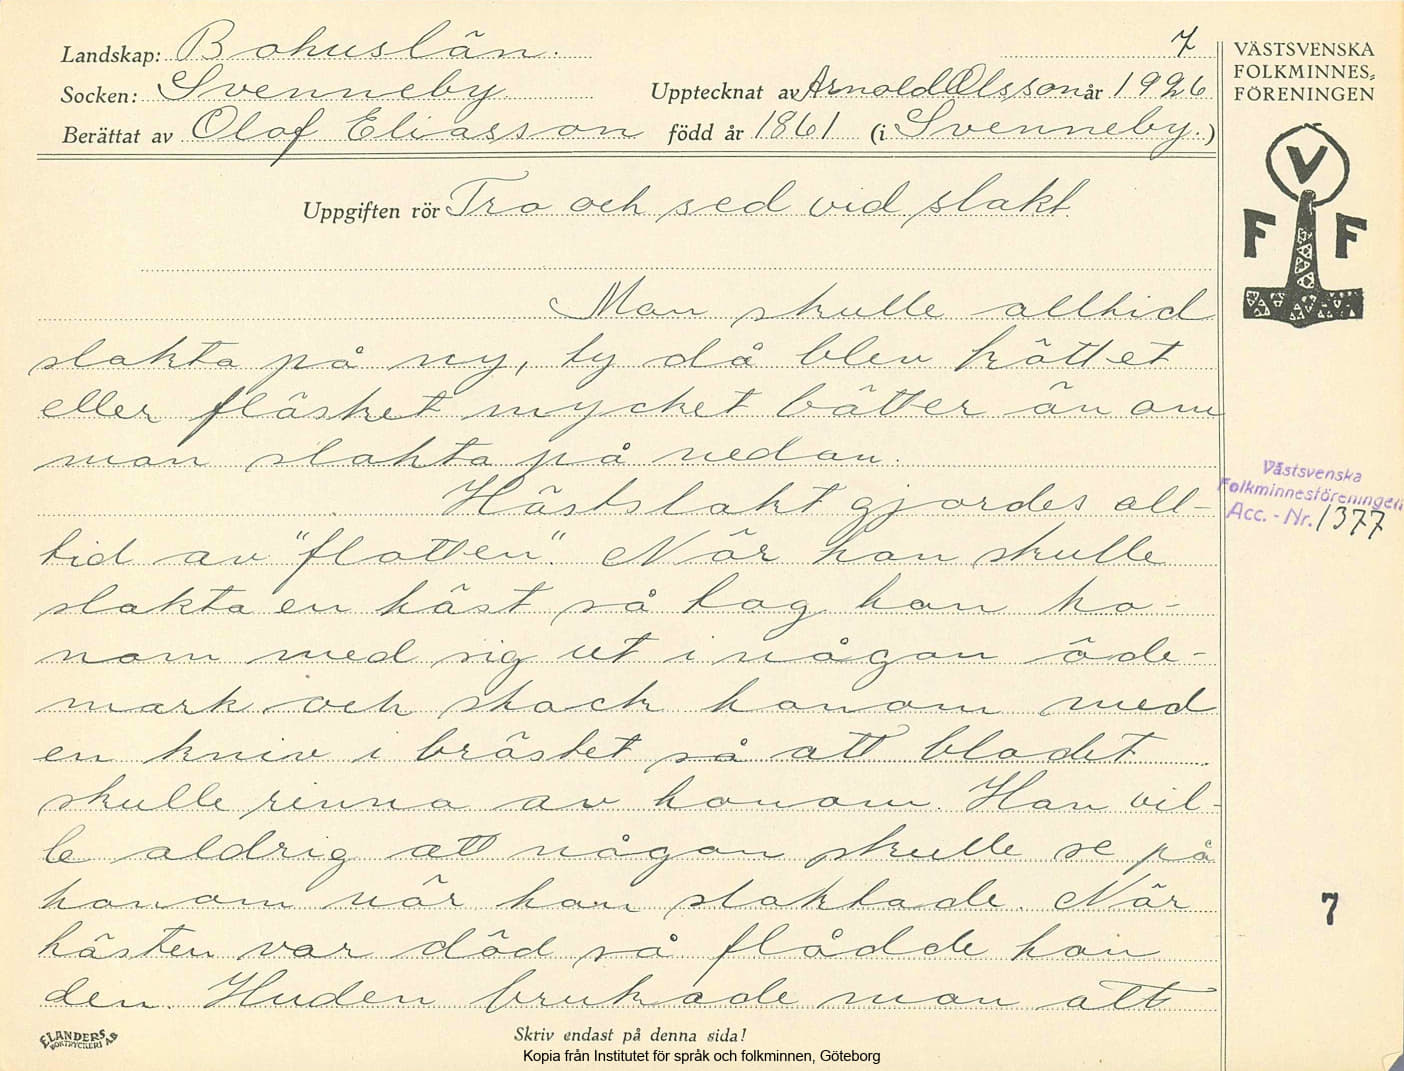 Landskap: Bohuslän. 7
Socken: Svenneby Upptecknat av Arnold Olsson år 1926
Berättat av Olof Eliasson född år 1861 (i Svenneby.)
Uppgiften rör Tro och sed vid slakt
Man skulle alltid
slakta på ny, ty då blev köttet
eller fläsket mycket bätter än om
man slakta på nedan.
Hästslakt gjordes all-
tid av "flotten". När han skulle
slakta en häst så tog han ho-
nom med sig ut i någon öde-
mark och stack honom med
en kniv i bröstet så att blodet
skulle rinna av honom. Han vil-
le aldrig att någon skulle se på
honom när han slaktade. När
hästen var död så flådde han
den. Huden brukade man att
ELANDERS BOKTRYCKERI AB
Skriv endast på denna sida!
Kopia från Institutet för språk och folkminnen, Göteborg
VÄSTSVENSKA
FOLKMINNES-
FÖRENINGEN
V
F F
Västsvenska
Folkminnesföreningen
Acc. - Nr. 1377
7